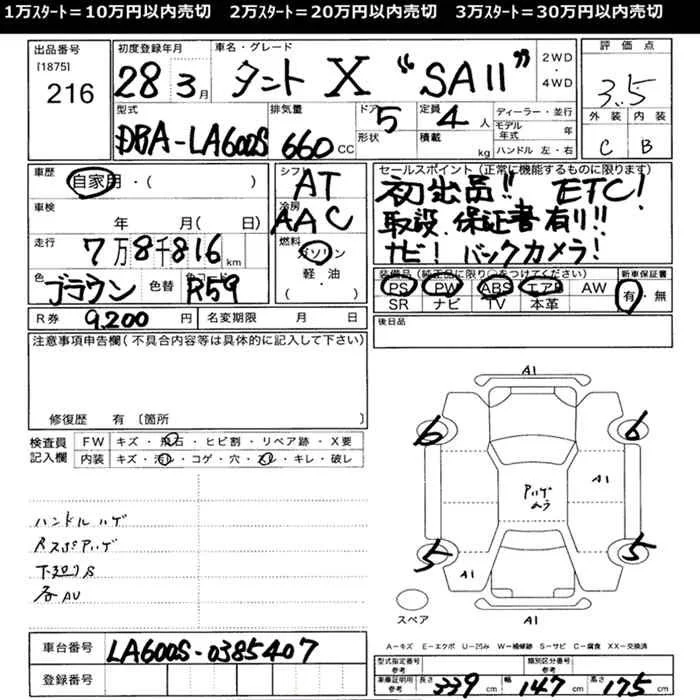 1万スタート＝10万円以内売切　2万スタート＝20万円以内売切　3万スタート＝30万円以内売切
出品番号
[1875]
216
初度登録年月
28 3月
車名・グレード
タント X "SAII"
2WD
・
4WD
評価点
3.5
外装 内装
C B
型式
DBA-LA600S
排気量
660 CC
ドア 5
形状
定員 4 人
積載 kg
ディーラー・並行
モデル年式 年
ハンドル 左・右
車歴
自家用・( )
車検
年 月( 日)
走行
7万8千816 km
色
ブラウン
色替
色コード
R59
シフト
AT
冷房
AAC
燃料
ガソリン
・
軽・油
( )
セールスポイント(正常に機能するものに限ります)
初出品!! ETC!
取説、保証書有り!!
ナビ! バックカメラ!
装備品(純正品に限り○をつけてください)
PS PW ABS エアB AW
SR ナビ TV 本革
新車保証書
有・無
R券 9,200 円
名変期限 月 日
後日品
注意事項申告欄(不具合内容等は具体的に記入して下さい)
修復歴 有〔箇所 〕
検査員記入欄
FW キズ・飛石・ヒビ割・リペア跡・X要
内装 キズ・汚レ・コゲ・穴・スレ・キレ・破レ
ハンドルハゲ
下廻りS
各AU
A1
6 6
A1
5 5
A1
A1
スペア
A－キズ E－エクボ U－凹み W－補修跡 S－サビ C－腐食 XX－交換済
車台番号
LA600S-0385407
登録番号
型式指定番号
参考
類別区分番号
参考
車庫証明用
参考
長さ 339 cm 幅 147 cm 高さ 175 cm